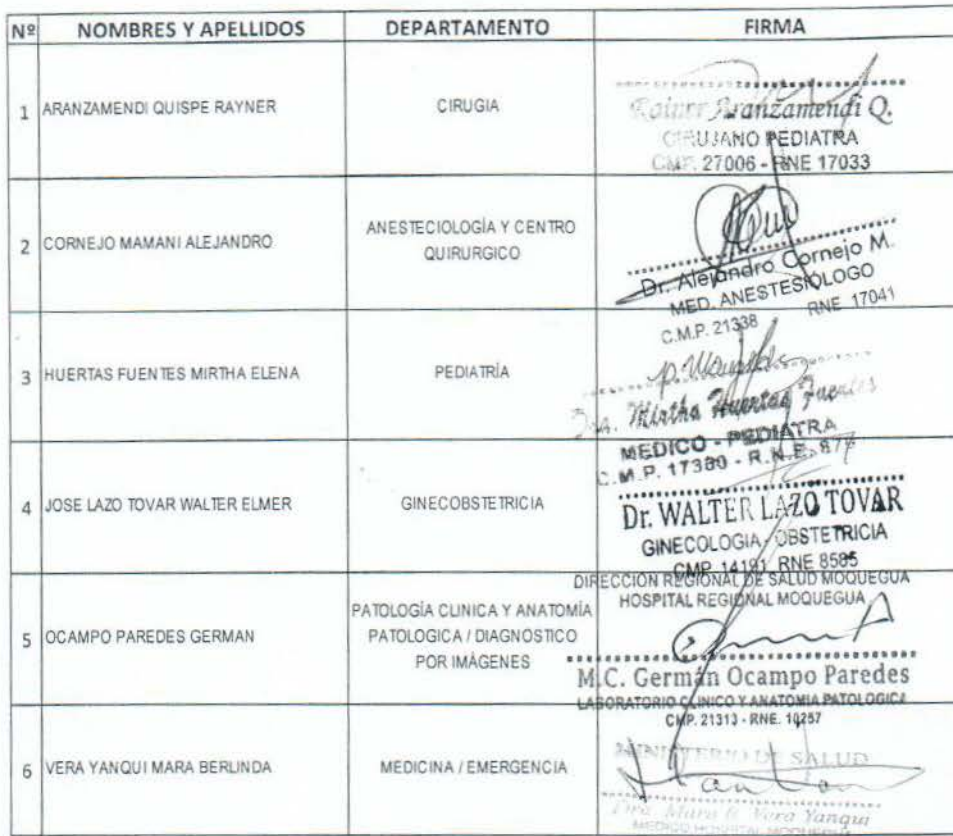 Nº NOMBRES Y APELLIDOS DEPARTAMENTO FIRMA
1 ARANZAMENDI QUISPE RAYNER CIRUGIA
Rainer Aranzamendi Q.
CIRUJANO PEDIATRA
CMP. 27006 - RNE 17033
2 CORNEJO MAMANI ALEJANDRO
ANESTECIOLOGÍA Y CENTRO
QUIRURGICO
Dr. Alejandro Cornejo M.
MED. ANESTESIÓLOGO
C.M.P. 21338 RNE 17041
3 HUERTAS FUENTES MIRTHA ELENA PEDIATRÍA
Dra. Mirtha Huertas Fuentes
MEDICO - PEDIATRA
C.M.P. 17380 - R.N.E.
4 JOSE LAZO TOVAR WALTER ELMER GINECOBSTETRICIA
Dr. WALTER LAZO TOVAR
GINECOLOGIA - OBSTETRICIA
CMP 14191 RNE 8585
5 OCAMPO PAREDES GERMAN
PATOLOGÍA CLINICA Y ANATOMÍA
PATOLOGICA / DIAGNOSTICO
POR IMÁGENES
DIRECCIÓN REGIONAL DE SALUD MOQUEGUA
HOSPITAL REGIONAL MOQUEGUA
M.C. Germán Ocampo Paredes
LABORATORIO CLINICO Y ANATOMIA PATOLOGICA
CMP. 21313 - RNE. 10257
6 VERA YANQUI MARA BERLINDA MEDICINA / EMERGENCIA
MINISTERIO DE SALUD
Dra. Mara B. Vera Yanqui
MEDICO HOSPITAL MOQUEGUA